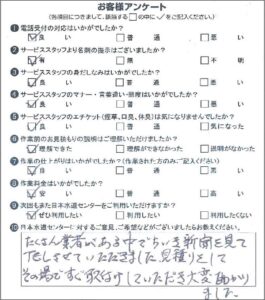 お客様アンケート
(各項目につきまして、該当する□の中に✓をご記入ください。)
❶電話受付の対応はいかがでしたか?
☑良い □普通 □悪い
❷サービススタッフより名刺の提示はございましたか?
☑有 □無 □不明
❸サービススタッフの身だしなみはいかがでしたか?
☑良い □普通 □悪い
❹サービススタッフのマナー・言葉遣い・態度はいかがでしたか?
☑良い □普通 □悪い
❺サービススタッフのエチケット(煙草、口臭、体臭)は気になりましたか?
☑良い □普通 □気になった
❻作業前のお見積もりの説明はご理解いただけましたか?
☑理解できた □理解ができなかった □説明がなかった
❼作業の仕上がりはいかがでしたか?(作業された方のみご記入ください)
☑良い □普通 □悪い
❽作業料金はいかがでしたか?
☑安い □普通 □高い
❾次回もまた日本水道センターをご利用いただけますか?
☑ぜひ利用したい □利用したい □利用したくない
❿日本水道センターに対するご意見、ご希望などがございましたらお答えください。
たくさん業者がある中でらいき新聞を見て
させていただきました見積りをして
その場ですぐ取付けしていただき大変助かり
ました。